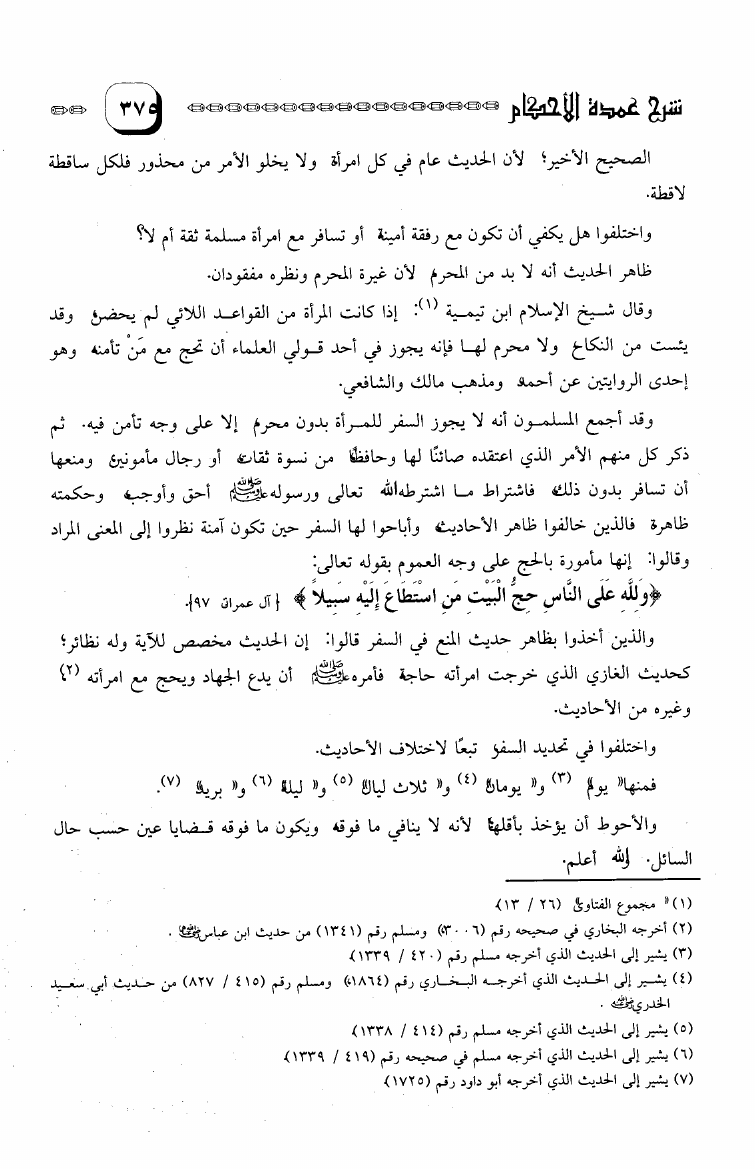 شرح عمدة الأحكام ٣٧٩
الصحيح الأخير؛ لأن الحديث عام في كل امرأة ولا يخلو الأمر من محذور فلكل ساقطة
لاقطة.
واختلفوا هل يكفي أن تكون مع رفقة أمينة أو تسافر مع امرأة مسلمة ثقة أم لا؟
ظاهر الحديث أنه لا بد من المحرم لأن غيرة المحرم ونظره مفقودان.
وقال شيخ الإسلام ابن تيمية (١): إذا كانت المرأة من القواعد اللائي لم يحضن وقد
يئست من النكاح ولا محرم لها فإنه يجوز في أحد قولي العلماء أن تحج مع مَنْ تأمنه وهو
إحدى الروايتين عن أحمد ومذهب مالك والشافعي.
وقد أجمع المسلمون أنه لا يجوز السفر للمرأة بدون محرم إلا على وجه تأمن فيه. ثم
ذكر كل منهم الأمر الذي اعتقده صائنًا لها وحافظًا من نسوة ثقات أو رجال مأمونين ومنعها
أن تسافر بدون ذلك فاشتراط ما اشترطه الله تعالى ورسوله ﷺ أحق وأوجب وحكمته
ظاهرة فالذين خالفوا ظاهر الأحاديث وأباحوا لها السفر حين تكون آمنة نظروا إلى المعنى المراد
وقالوا: إنها مأمورة بالحج على وجه العموم بقوله تعالى:
﴿وَلِلَّهِ عَلَى النَّاسِ حِجُّ الْبَيْتِ مَنِ اسْتَطَاعَ إِلَيْهِ سَبِيلاً﴾ {آل عمران ٩٧}.
والذين أخذوا بظاهر حديث المنع في السفر قالوا: إن الحديث مخصص للآية وله نظائر؛
كحديث الغازي الذي خرجت امرأته حاجة فأمره ﷺ أن يدع الجهاد ويحج مع امرأته (٢)
وغيره من الأحاديث.
واختلفوا في تحديد السفر تبعًا لاختلاف الأحاديث.
فمنها" يوم (٣) و" يومان (٤) و" ثلاث ليال (٥) و" ليلة (٦) و" بريد (٧).
والأحوط أن يؤخذ بأقلها لأنه لا ينافي ما فوقه ويكون ما فوقه قضايا عين حسب حال
السائل. والله أعلم.
(١)" مجموع الفتاوى (٢٦ / ١٣)
(٢) أخرجه البخاري في صحيحه رقم (٣٠٠٦) ومسلم رقم (١٣٤١) من حديث ابن عباس رضي الله عنهما .
(٣) يشير إلى الحديث الذي أخرجه مسلم رقم (٤٢٠ / ١٣٣٩)
(٤) يشير إلى الحديث الذي أخرجه البخاري رقم (١٨٦٤) ومسلم رقم (٤١٥ / ٨٢٧) من حديث أبي سعيد
الخدري رضي الله عنه .
(٥) يشير إلى الحديث الذي أخرجه مسلم رقم (٤١٤ / ١٣٣٨)
(٦) يشير إلى الحديث الذي أخرجه مسلم في صحيحه رقم (٤١٩ / ١٣٣٩)
(٧) يشير إلى الحديث الذي أخرجه أبو داود رقم (١٧٢٥)